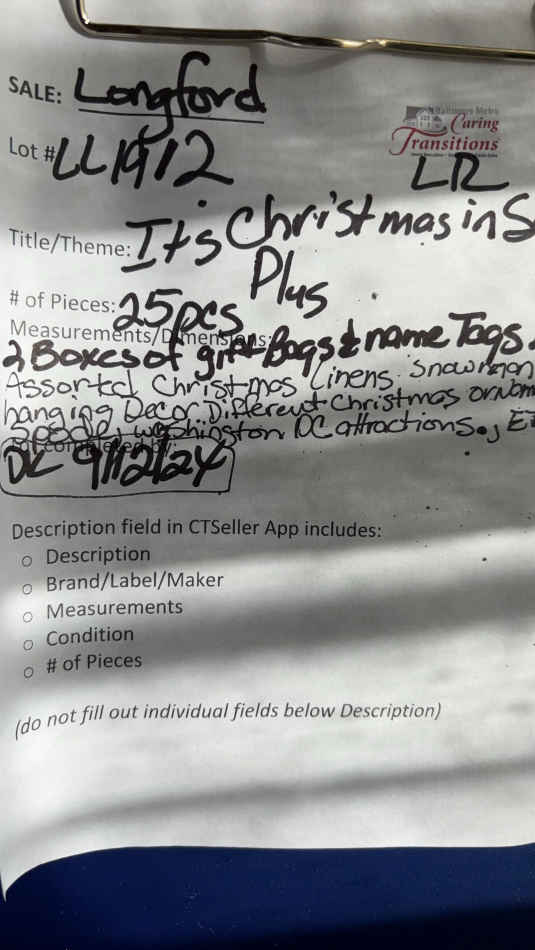 SALE: Longford
Baltimore Metro
Caring
Transitions
Lot # LL1912
LR
Title/Theme: It's Christmas in S
Plus
# of Pieces: 25pcs
Measurements/Dimensions:
2 Boxes of gift Bags & name Tags.
Assorted Christmas Linens. Snowman
hanging Decor. Different Christmas ornam
Spode, washington DC attractions., Et
completed by:
DC 9/12/24
Description field in CTSeller App includes:
o Description
o Brand/Label/Maker
o Measurements
o Condition
o # of Pieces
(do not fill out individual fields below Description)